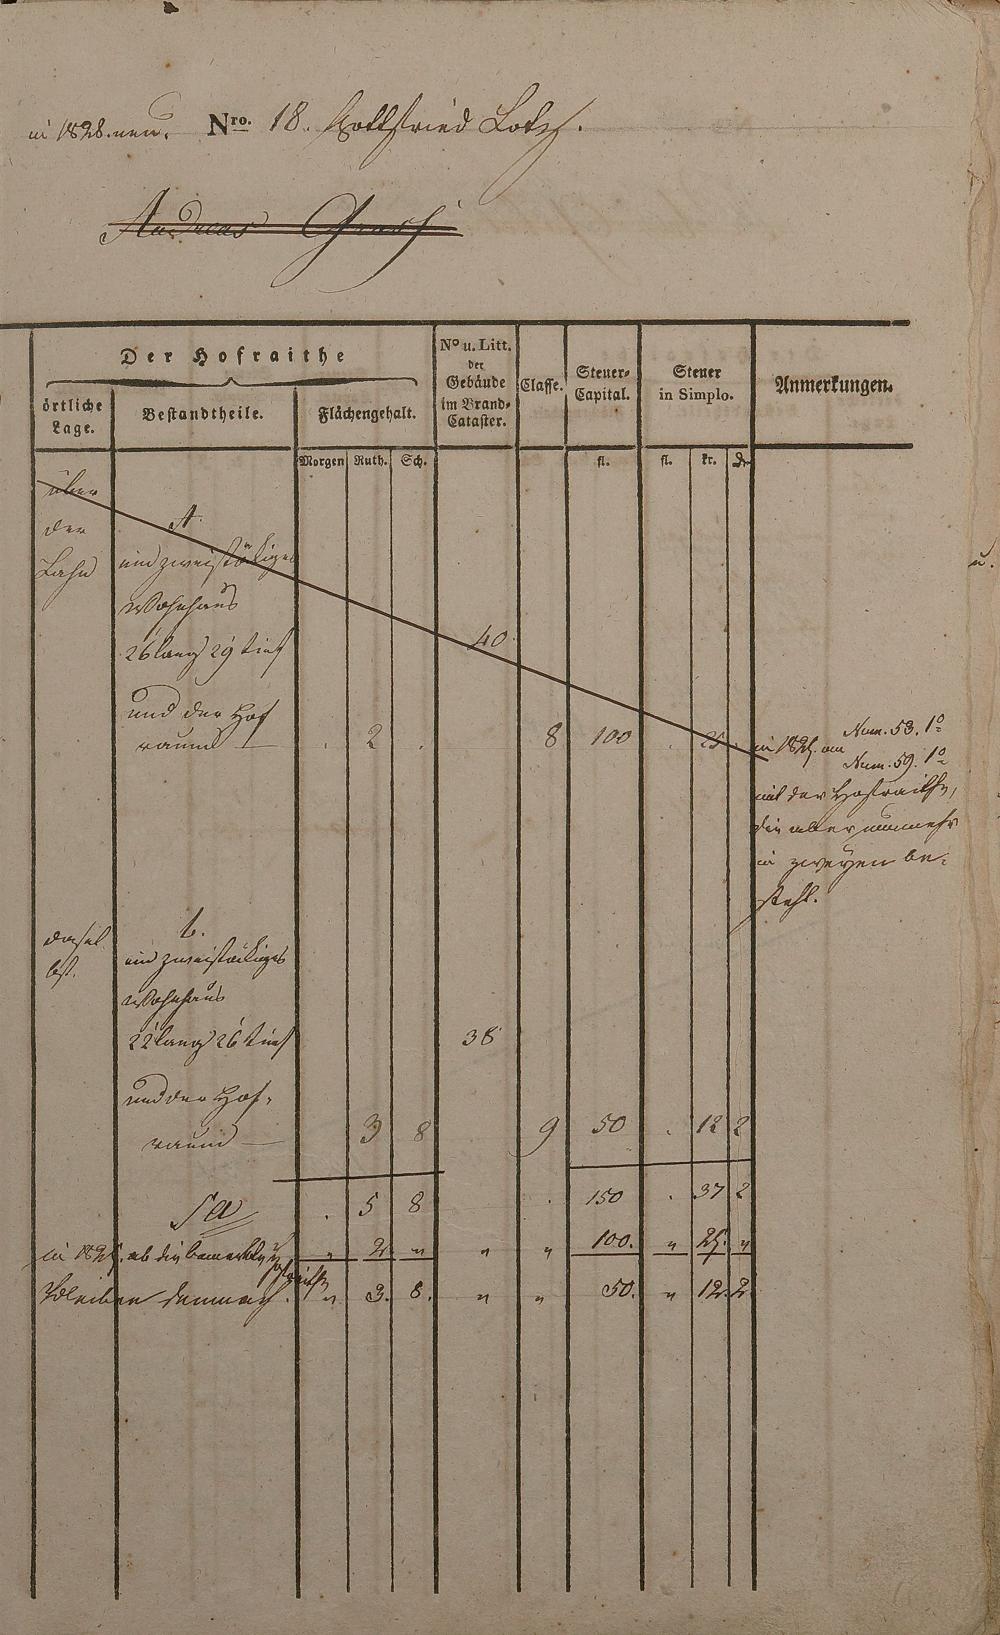 in 1828. neu. Nro. 18. Gottfried Lotz.
Andreas
Der Hofraithe
örtliche Lage.
Bestandtheile.
Flächengehalt.
No u. Litt. der Gebäude im Brand-Cataster.
Classe.
Steuer-Capital.
Steuer in Simplo.
Anmerkungen.
Morgen Ruth. Sch. fl. fl. kr. d
über
der A.
Lahn ein zweistökiges
Wohnhaus
26 lang 29 tief 40
und der Hof
raum — . 2 . 8 100 . 25 .
in 1825. an Num. 53. 1o
Num. 59. 1o
mit der Hofraithe,
die aber nunmehr
in zweyen be-
steht.
dasel b.
bst. ein zweistökiges
Wohnhaus
22 lang 26 tief 38
und der Hof-
raum — 3 8 9 50 . 12 2
Sa . 5 8 . 150 . 37 2
in 1825. ab die bemerkte Hofraithe " 2. " " " 100. " 25. "
Bleiben demnach. " 3. 8. " " 50. " 12. 2.
u.